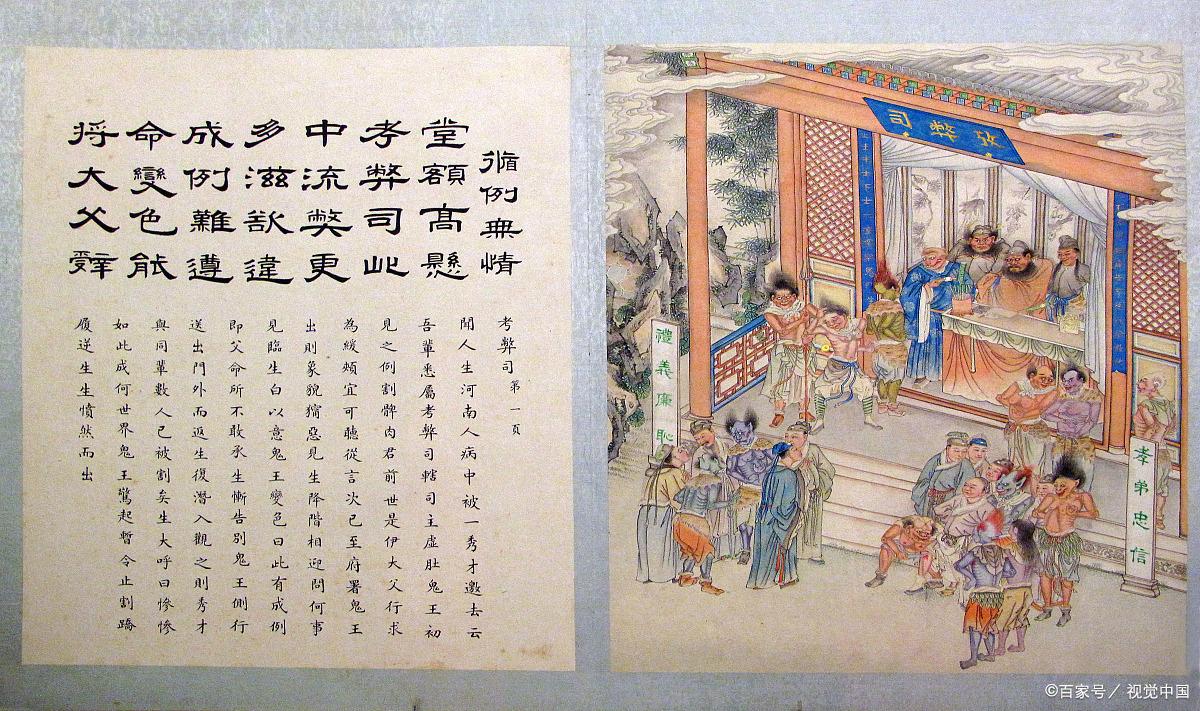 循例無情
堂額高懸
考弊司此
中流獘更
多滋欲違
成例難遵
命變色能
將大父辭
考弊司 第一頁
聞人生河南人病中被一秀才邀去云
吾輩悉屬考弊司轄司主虛肚鬼王初
見之例割髀肉君前世是伊大父行求
為緩頰宜可聽從言次已至府署鬼王
出則象貌獰惡見生降階相迎問何事
見臨生白以意鬼王變色曰此有成例
即父命所不敢承生慚告別鬼王側行
送出門外而返生復潛入觀之則秀才
與同輩數人已被割矣生大呼曰慘慘
如此成何世界鬼王驚起暫令止割蹻
履逆生生憤然而出
攷弊司
孝弟忠信
禮義廉恥
©百家号／视觉中国